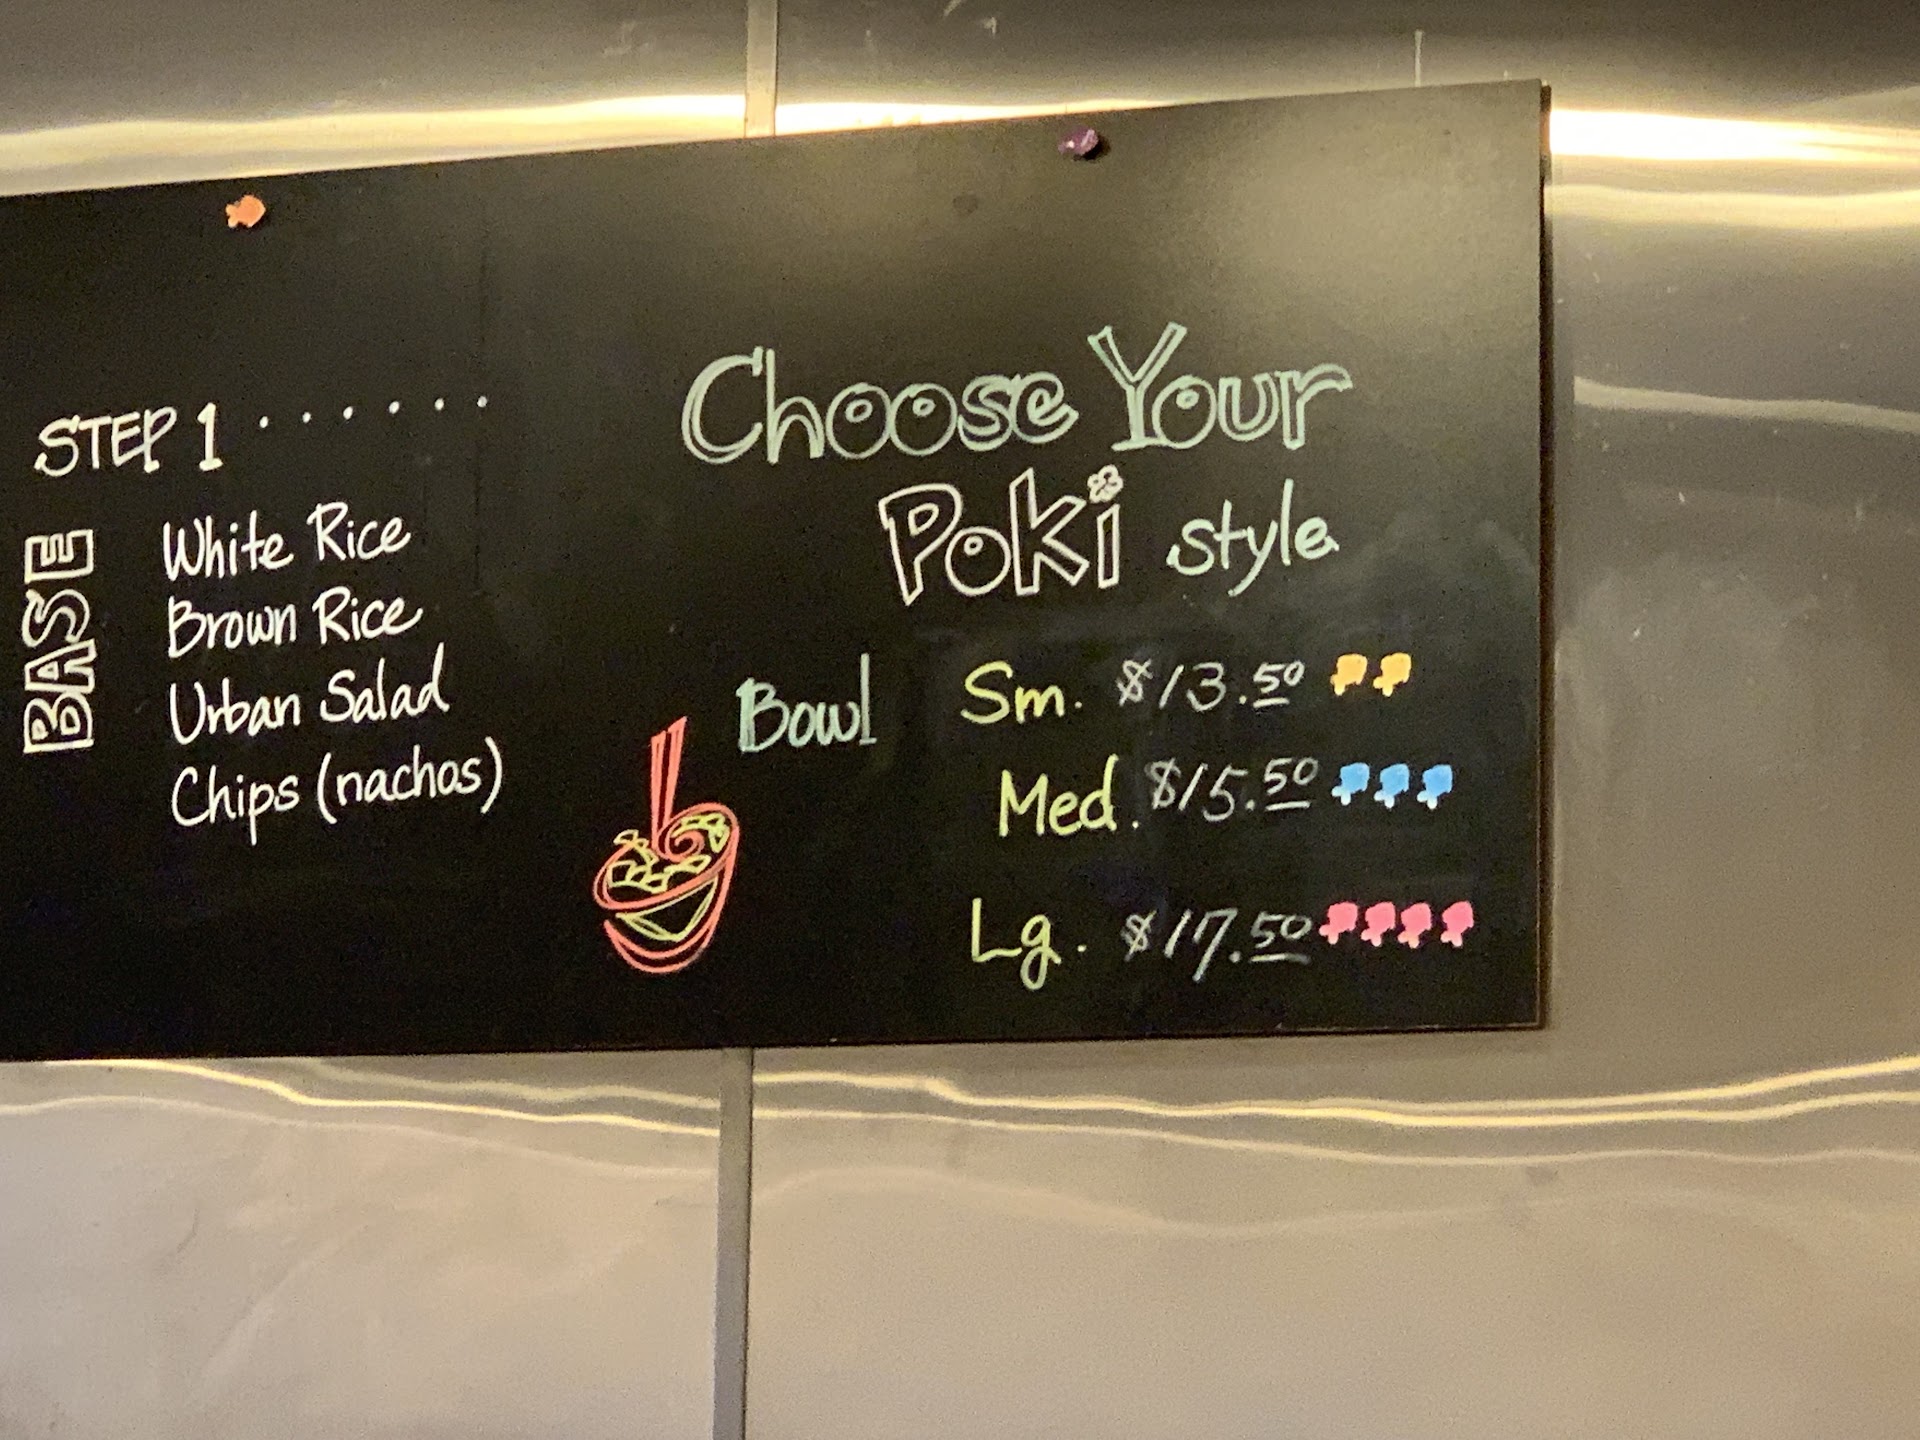 STEP 1 . . . . . .
BASE
White Rice
Brown Rice
Urban Salad
Chips (nachos)
Choose Your
Poki style
Bowl
Sm. $13.50
Med. $15.50
Lg. $17.50